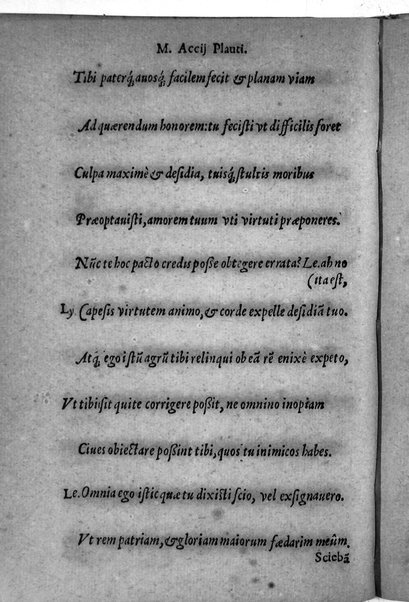 M. Accij Plauti.
Tibi paterq́, auosq́, facilem fecit & planam viam
Ad quærendum honorem: tu fecisti vt difficilis foret
Culpa maximè & desidia, tuisq́, stultis moribus
Præoptauisti, amorem tuum vti virtuti præponeres.
Nũc te hoc pacto credis posse obtegere errata? Le. ah no
(ita est,
Ly. Capesis virtutem animo, & corde expelle desidiã tuo.
Atq́, ego istũ agrũ tibi relinqui ob eã rẽ enixè expeto,
Vt tibi sit qui te corrigere possit, ne omnino inopiam
Ciues obiectare possint tibi, quos tu inimicos habes.
Le. Omnia ego istic quæ tu dixisti scio, vel exsignauero.
Vt rem patriam, & gloriam maiorum fœdarim meûm.
Sciebã